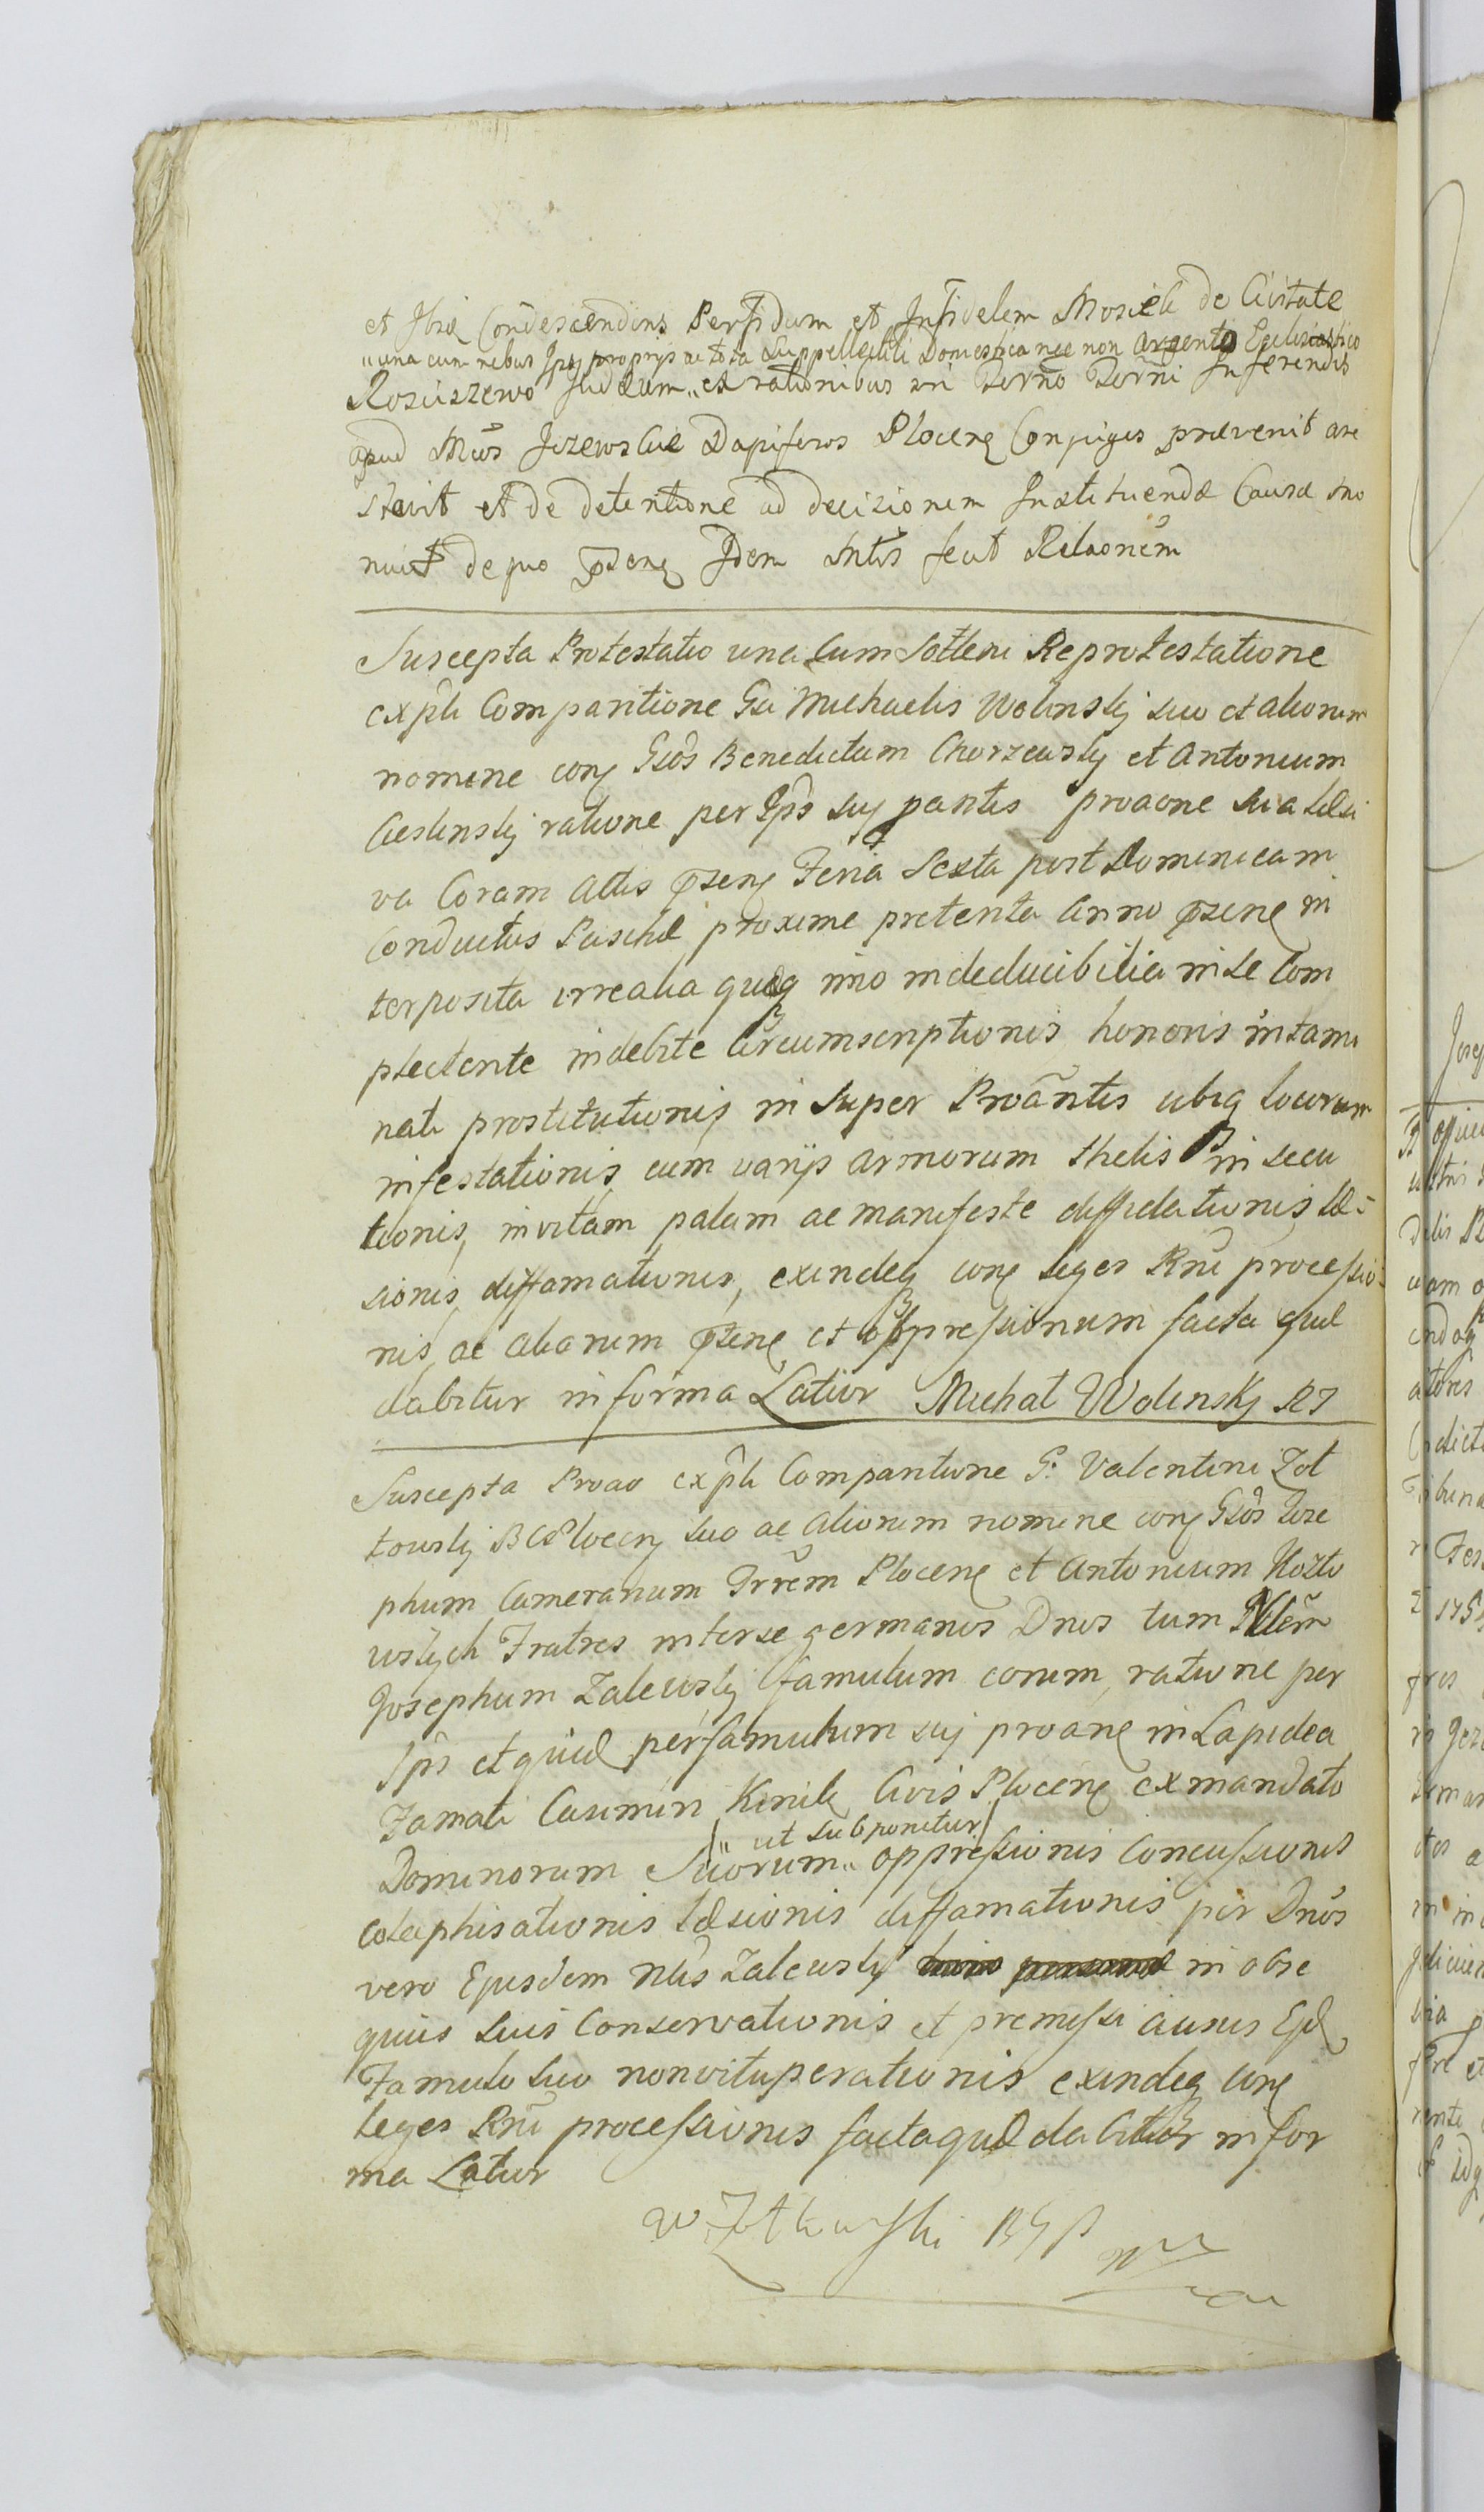 et Ibid Condescendens Perfidum et Infidelem Mosieli de Civitate
„una cum rebus Ipsi proprijs ac tota Suppellectili Domestica nec non Argento Ecclesiastico
Rosciszewo Judeum „ et rationibus in Termo Termi Inferendis
apud Mcos Jezewskie Dapiferos Plocens Conjuges prævenit are
stavit et de detentione ad decisionem Instituendæ Causæ mo
nuit de quo præsens Idem Mntrs fecit Relaonem
Suscepta Protestatio una Cum Solleni Reprotestatione
ex pli Comparitione Gsi Michaelis Wolinskij suo et aliorum
nomine cone Gsos Benedictum Chorzewskij et Antonium
Cieslinskij ratione per Ipos suij partis proaone sua lesi
va Coram Actis præsens Feria Sexta post Dominicam
Conductus Paschæ proxime pretenta Anno præsene in
terposita irrealia quæq imo indeducibilia in se Com
plectente indebite Circumscriptionis honoris intami
nati prostitutionis in super Proantis ubiq locorum
infestationis cum varijs armorum thelis in secu
tionis, in vitam palam ac manifeste diffidationis læ-
sionis diffamationis, exindeq cone leges Rni processio-
nis ac aliarum præsene et oppressionum facta quæ
dabitur in forma Latior Michał Wolinskj RJ
Suscepta Proao ex pli Comparitione G: Valentini Żół
towskij BCPlocens suo ac aliorum nomine cone Gsos Jose
phum Camerarium Trrem Plocens et Antonium Kozło
wskych Fratres inter se germanos Dnos tum Nblem
Josephum Zalewskij famulum eorum, ratione per
Ipm et quid per famulum suij proane in Lapidea
Famati Casimiri Kinik Civis Plocens ex mandato
„ut subponitur
Dominorum Suorum „ oppressionis Concussionis
colaphisationis læsionis diffamationis per Dnos
vero Ejusdem Nblis Zalewskij in obse
quiis suis Conservationis et premissi ausus Ejd
Famulo suo non vituperationis exindeq cone
leges Rni processionis facta quæ dabitur in for
ma Latior
W Żółtowski BGP